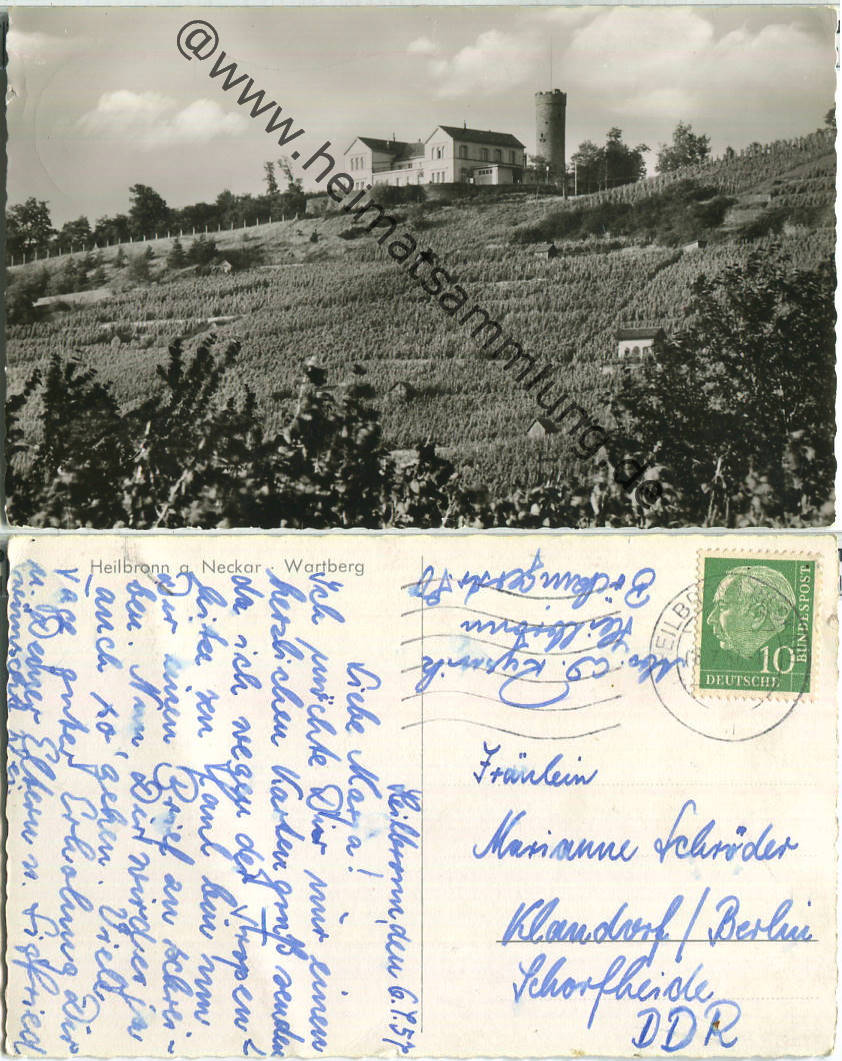 @www.heimatsammlung.de
Heilbronn a. Neckar · Wartberg
Heilbronn, den 6.9.57
Liebe
ich möchte Dir nur einen
herzlichen Kartengruß senden
da ich wegen der
zu faul bin um
Dir einen Brief zu schrei-
ben. Nun, Dir wird es ja
auch so gehen. Viele
gute Erholung Dir
u. Deinen Eltern u. Sigfried
wünscht
Heilbronn
HEILBRO
DEUTSCHE
BUNDESPOST
10
Fräulein
Marianne Schröder
Klandorf / Berlin
Schorfheide
DDR